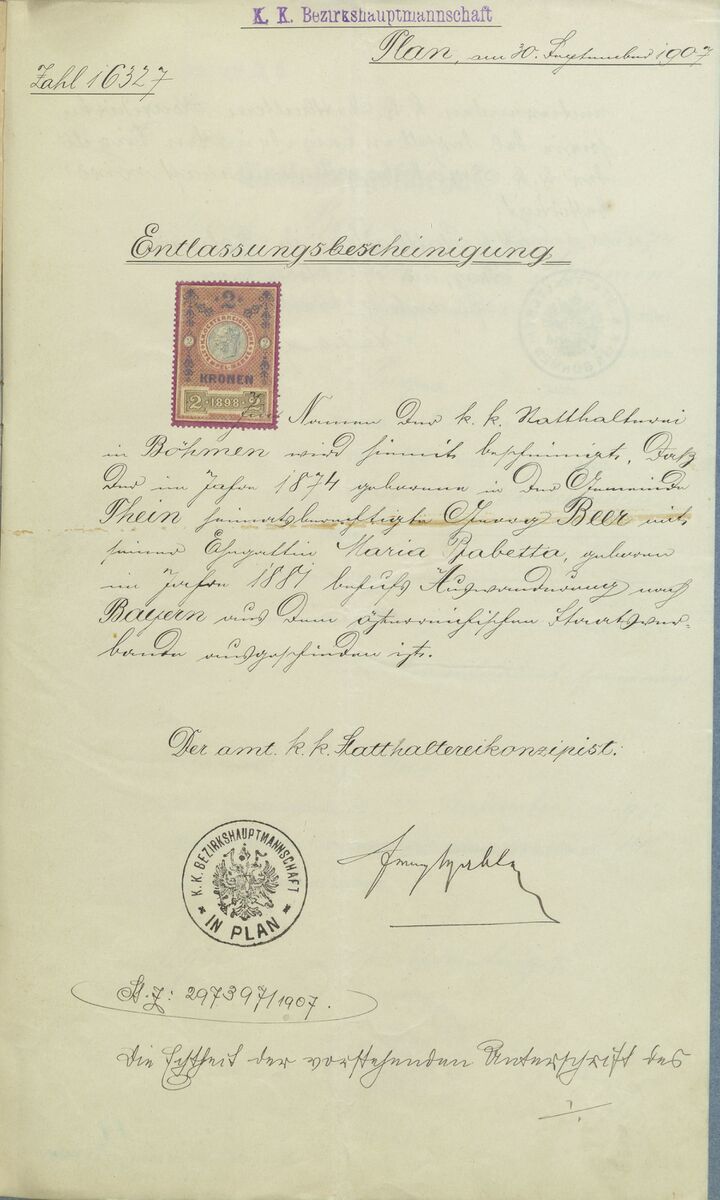 K. K. Bezirkshauptmannschaft
Plan, am 30. September 1907
Zahl 16327
Entlassungsbescheinigung
2
K.K. OESTERREICHISCHE STEMPEL-MARKE
2 2
KRONEN
2 1898 2
Im Namen der k. k. Statthalterei
in Böhmen wird hiemit bescheinigt, daß
der im Jahre 1874 geborene in der Gemeinde
Thein heimatsberechtigte Georg Beer mit
seiner Ehegattin Maria Babetta, geboren
im Jahre 1881 behufs Auswanderung nach
Bayern aus dem österreichischen Staatsver-
bande ausgeschieden ist.
Der amt. k. k. Statthaltereikonzipist:
K. K. BEZIRKSHAUPTMANNSCHAFT
IN PLAN
St. Z: 297397/1907.
Die Echtheit der vorstehenden Unterschrift des